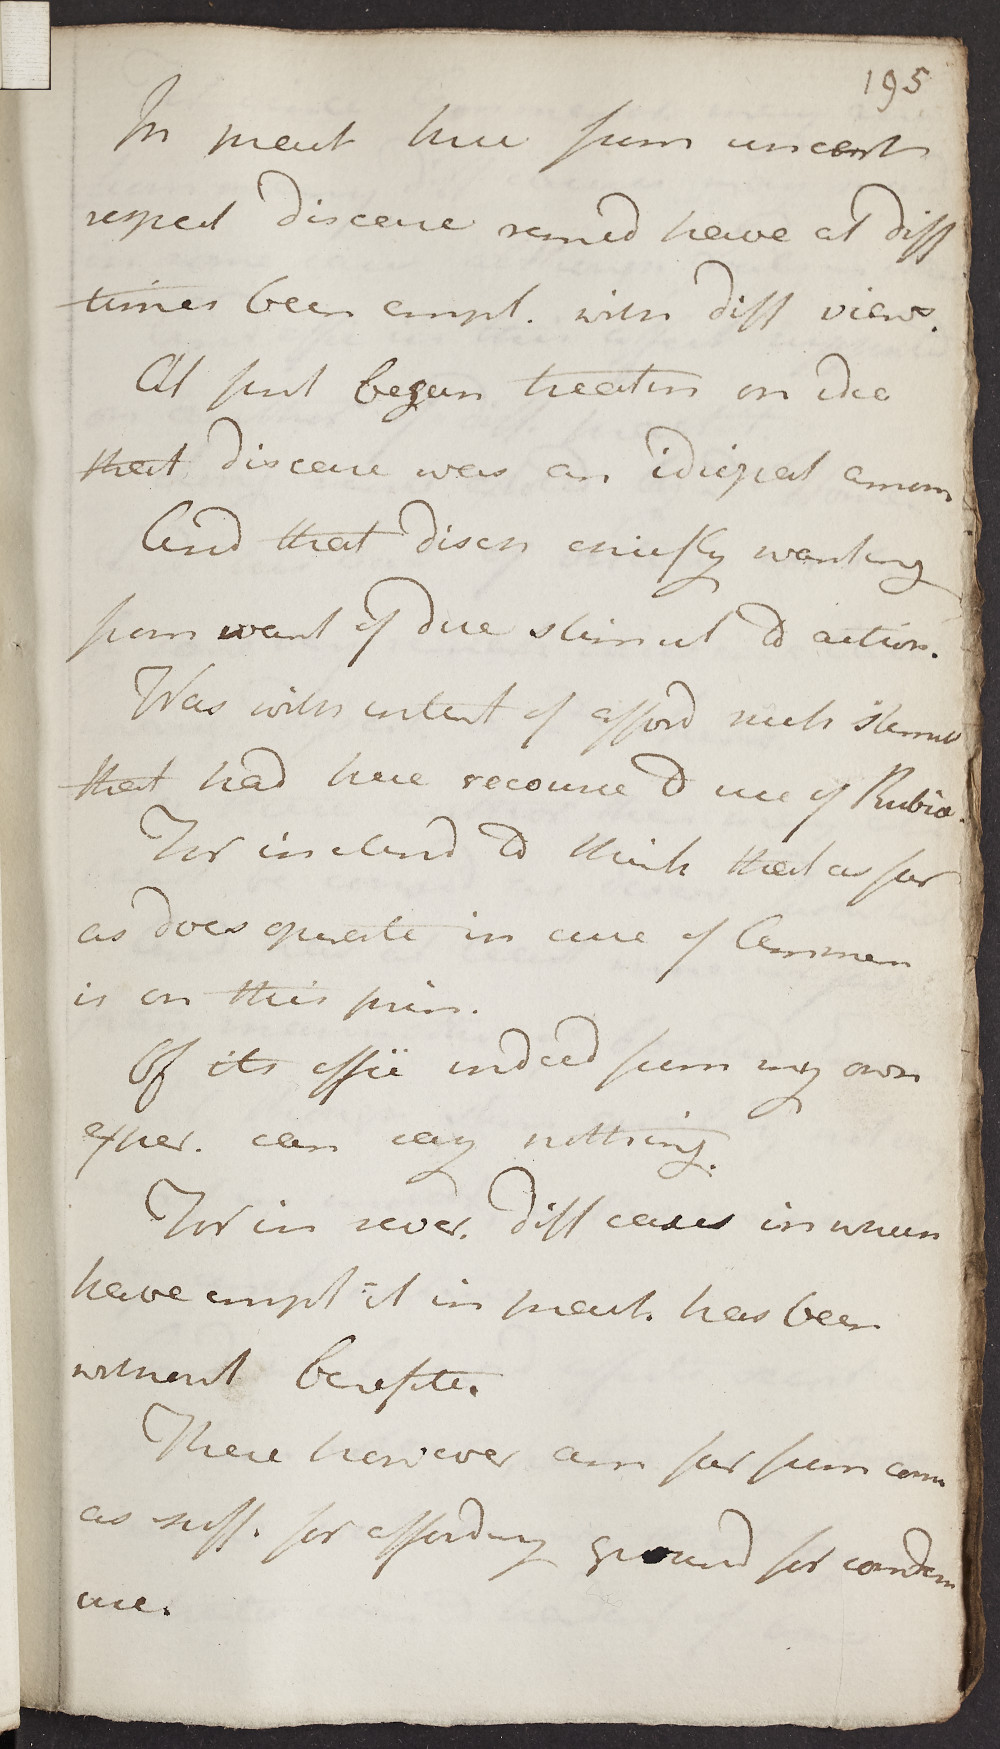 195
In pract here from uncert
respect disease remed have at diff
times been empl. with diff views.
At first began treatm on idea
that disease was an idiopat amen
And that disch chiefly wanting
from want of due stimul to action.
Was with intent of afford such stimul
that had here recourse to use of Rubia.
For inclend to think that as far
as does operate in cure of Amenen
is on this prin.
Of its effic indeed from my own
exper. can say nothing.
For in sever. diff cases in whch
have empl it in pract. has been
without benefite.
These however am far from cons
as suff. for affording ground for condem
use.